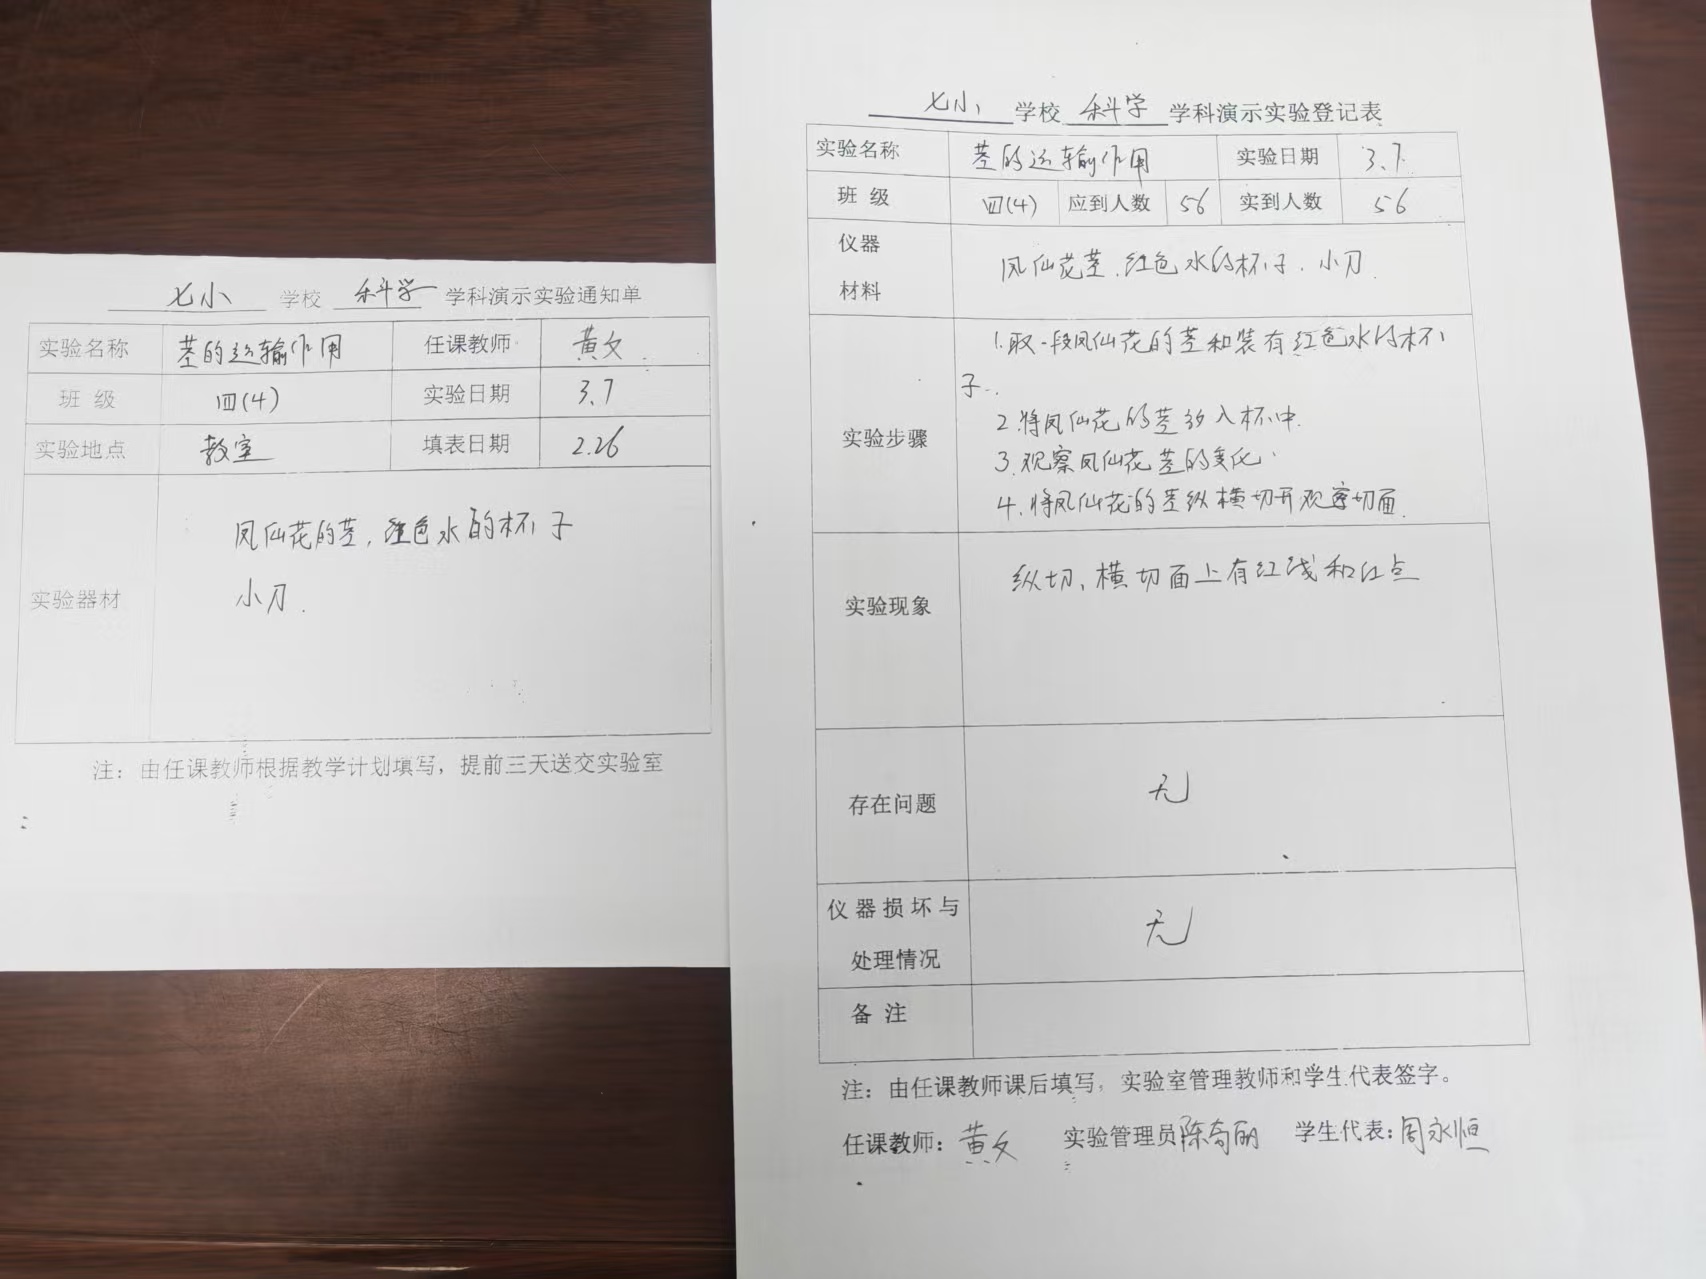 七小 学校 科学 学科演示实验通知单
实验名称 茎的运输作用 任课教师 黄文
班 级 四(4) 实验日期 3.7
实验地点 教室 填表日期 2.26
实验器材 凤仙花的茎,红色水的杯子
小刀.
注：由任课教师根据教学计划填写，提前三天送交实验室
七小 学校 科学 学科演示实验登记表
实验名称 茎的运输作用 实验日期 3.7
班 级 四(4) 应到人数 56 实到人数 56
仪器
材料 凤仙花茎.红色水的杯子.小刀.
1.取一段凤仙花的茎和装有红色水的杯
子.
2.将凤仙花的茎放入杯中.
实验步骤
3.观察凤仙花茎的变化.
4.将凤仙花的茎纵横切开观察切面.
实验现象 纵切、横切面上有红线和红点
存在问题 无
仪器损坏与
处理情况 无
备 注
注：由任课教师课后填写，实验室管理教师和学生代表签字。
任课教师：黄文 实验管理员陈奇丽 学生代表：周永恒